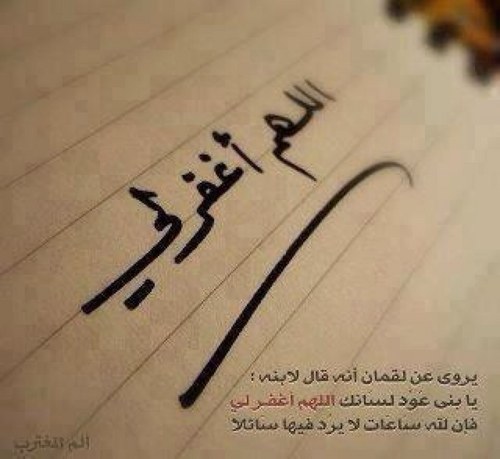 اللهم أغفر لي
يروى عن لقمان أنه قال لابنه :
يا بنى عَوّد لسانك اللهم أغفر لي
فإن لله ساعات لا يرد فيها سائلا
ألم المغترب